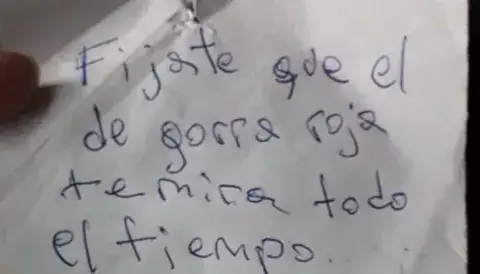 Fijate que el
de gorra roja
te mira todo
el tiempo..